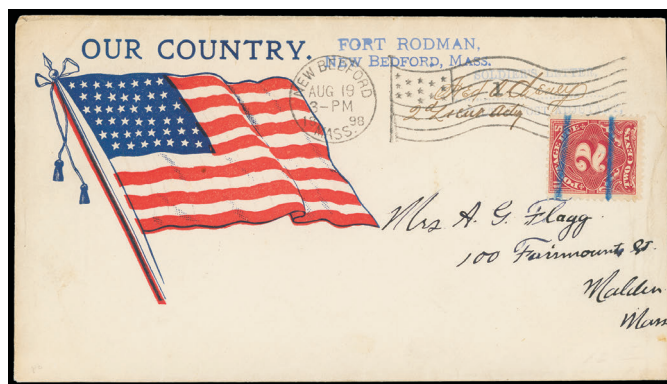 OUR COUNTRY.
FORT RODMAN,
NEW BEDFORD, MASS.
NEW BEDFORD
AUG 19
3-PM
98
MASS.
SOLDIER'S LETTER.
2
TWO CENTS
Mrs A. G. Flagg
100 Fairmounts St.
Malden
Mass